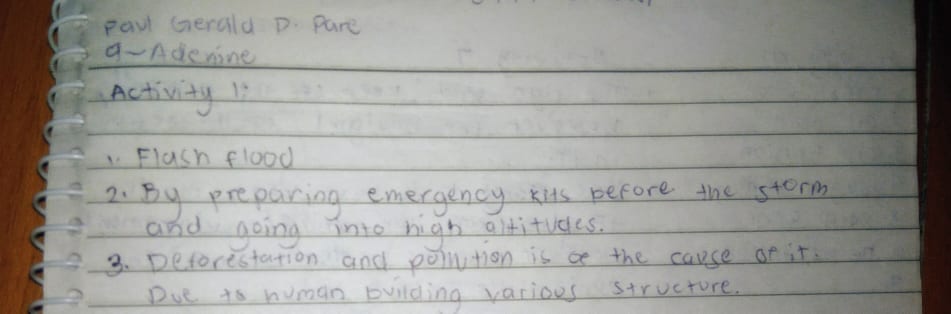 Paul Gerald D. Pare
9-Adenine
Activity 1:
1. Flash flood
2. By preparing emergency kits before the storm
and going into high altitudes.
3. Deforestation and pollution is the cause of it.
Due to human building various structure.